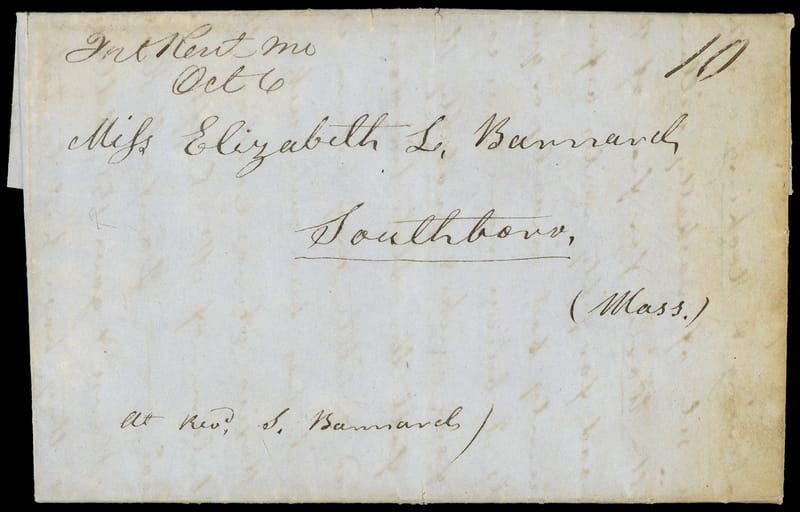 Fort Kent Me
Oct 6
10
Miss Elizabeth L. Barnard
Southboro.
(Mass.)
At Revd. S. Barnard)